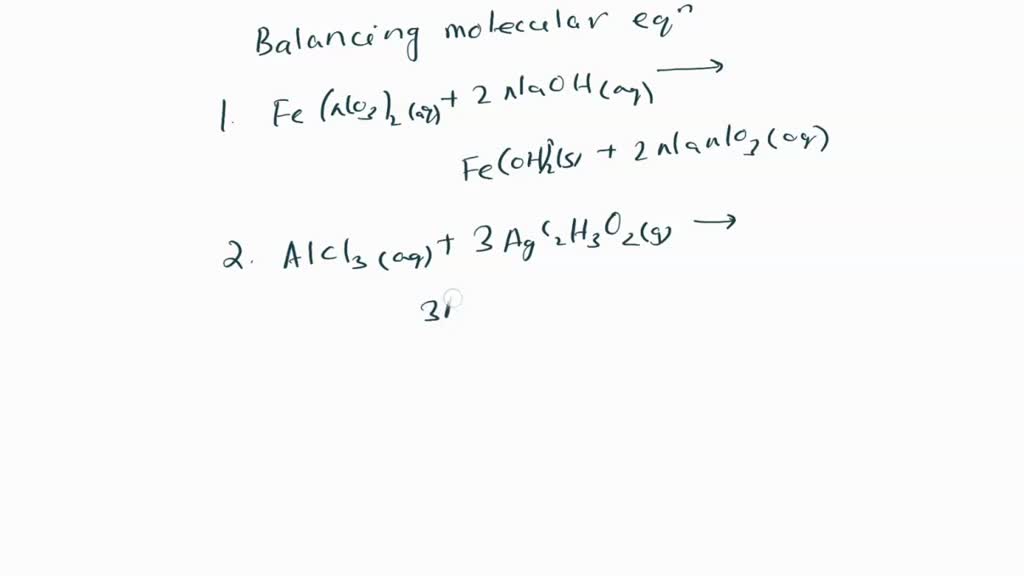 Balancing molecular eqⁿ
1. Fe(NO₃)₂(aq) + 2 NaOH(aq) ⟶
Fe(OH)₂(s) + 2 NaNO₃(aq)
2. AlCl₃(aq) + 3 AgC₂H₃O₂(g) →
3